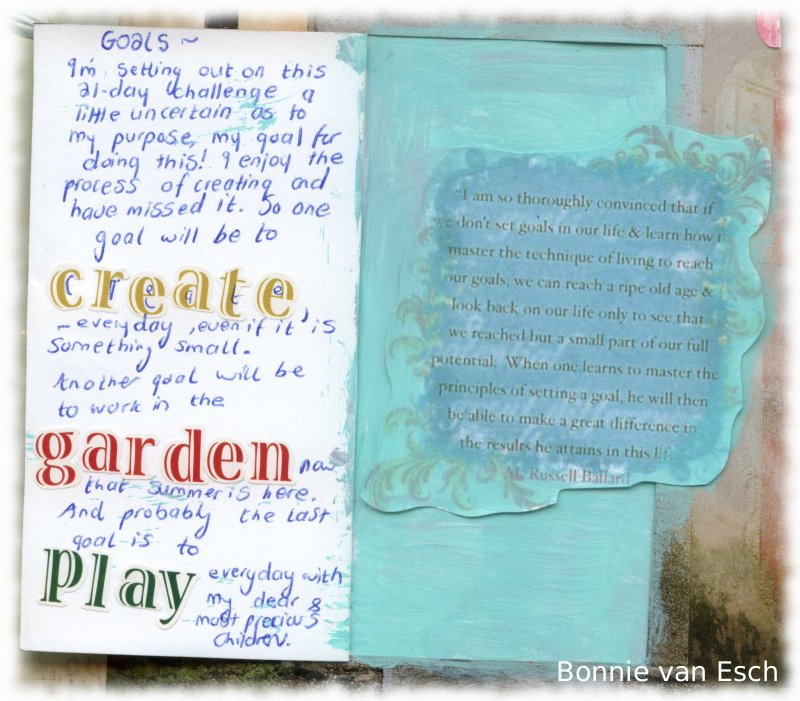 Goals ~
I'm setting out on this
21-day challenge a
little uncertain as to
my purpose, my goal for
doing this! I enjoy the
process of creating and
have missed it. So one
goal will be to
create
– everyday, even if it's
something small.
Another goal will be
to work in the
garden now
that summer is here.
And probably the last
goal is to
play everyday with
my dear &
most precious
children.
"I am so thoroughly convinced that if
we don't set goals in our life & learn how to
master the technique of living to reach
our goals, we can reach a ripe old age &
look back on our life only to see that
we reached but a small part of our full
potential. When one learns to master the
principles of setting a goal, he will then
be able to make a great difference in
the results he attains in this life.
M. Russell Ballard
Bonnie van Esch